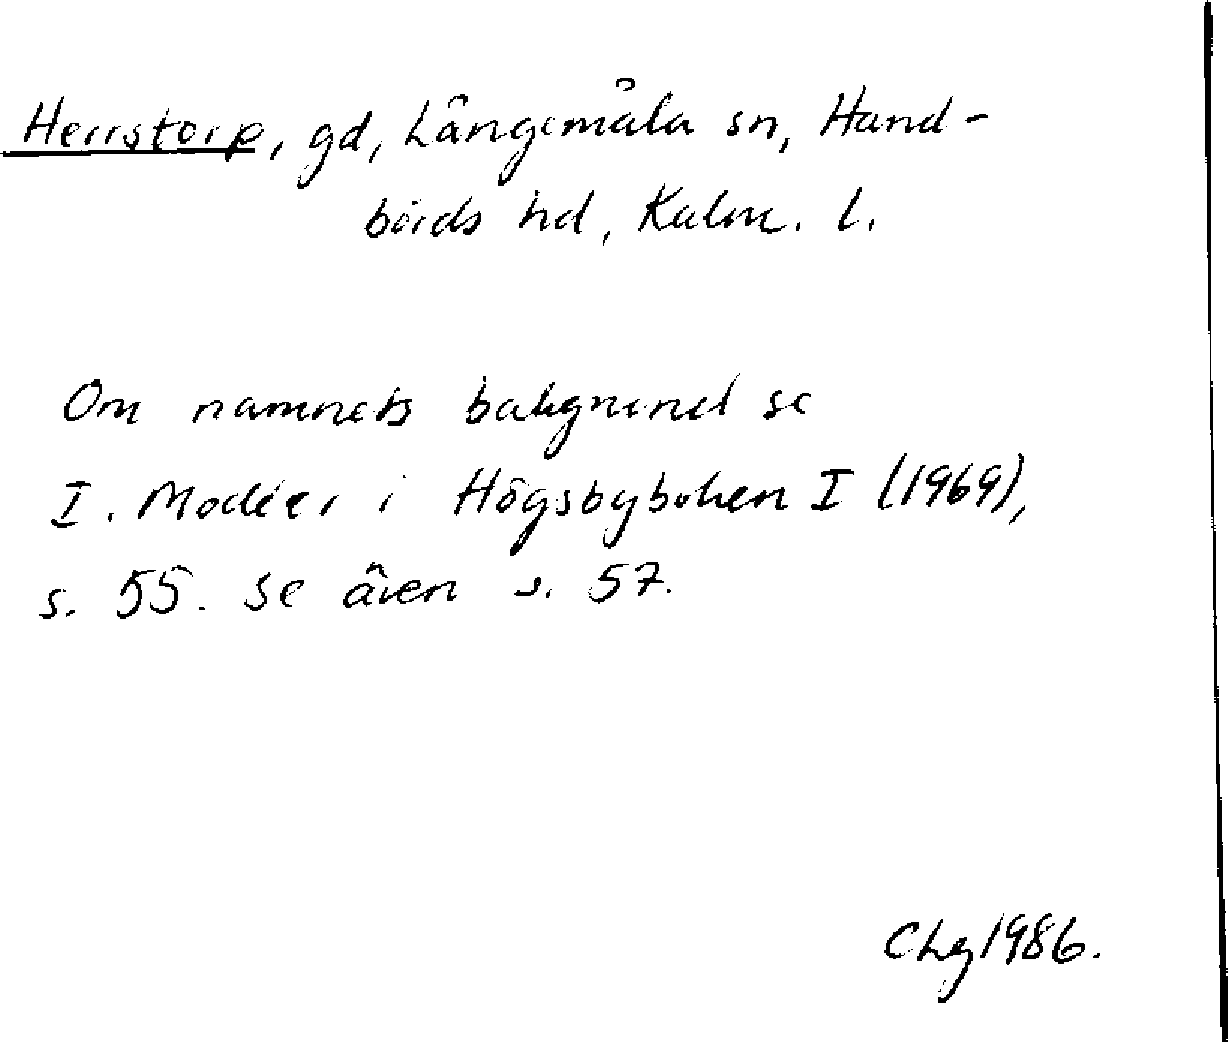 Herrstorp, gd, Långemåla sn, Hand-
börds hd, Kalm. l.
Om namnets bakgrund se
I. Modéer i Högsbyboken I (1969),
s. 55. Se även s. 57.
CLg 1986.